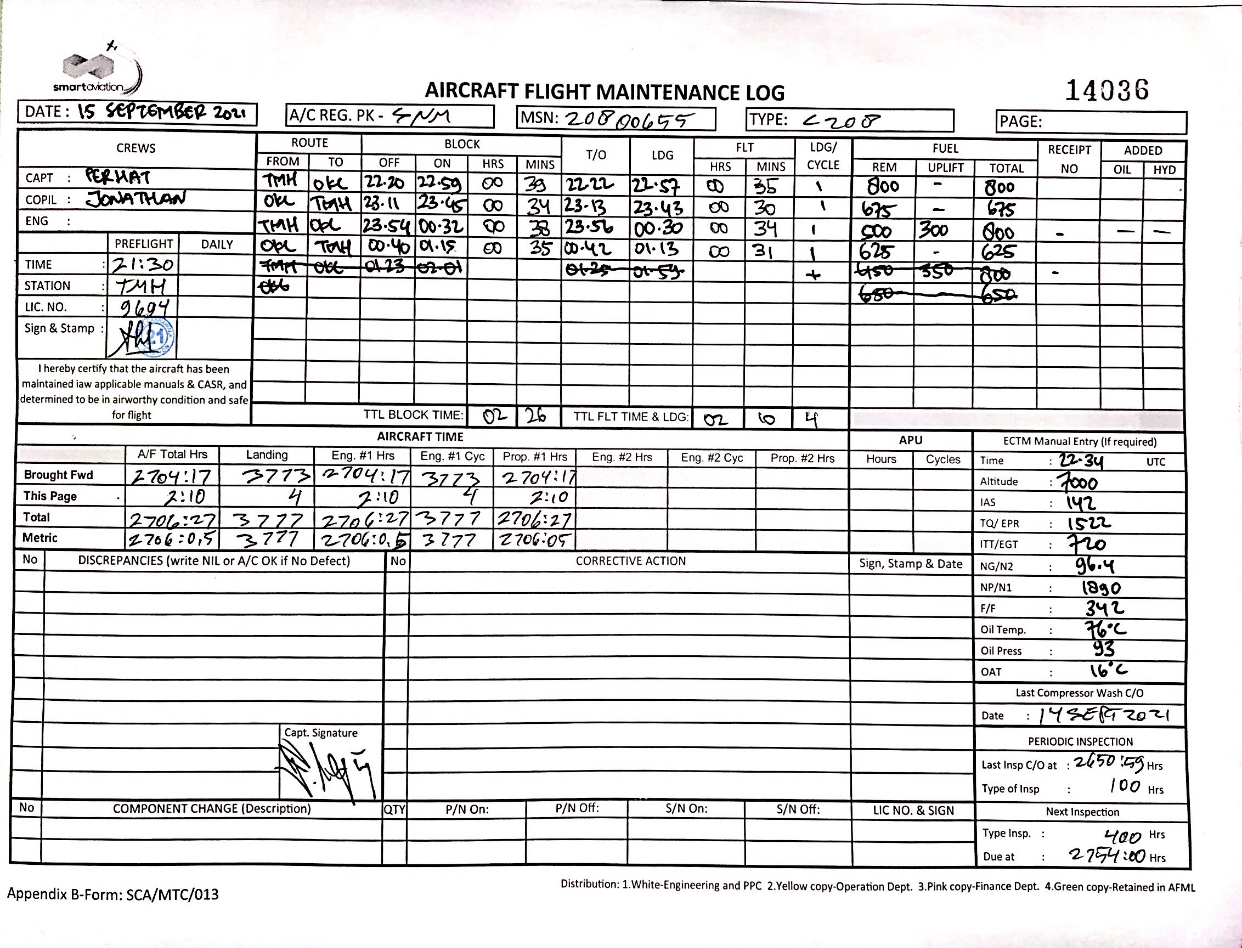 smartaviation
AIRCRAFT FLIGHT MAINTENANCE LOG
14036
DATE : 15 SEPTEMBER 2021 A/C REG. PK - SNM MSN: 20800655 TYPE: C208 PAGE:
CREWS ROUTE BLOCK T/O LDG FLT LDG/ CYCLE FUEL RECEIPT NO ADDED
FROM TO OFF ON HRS MINS HRS MINS REM UPLIFT TOTAL OIL HYD
CAPT : PERHAT TMH OKL 22.20 22.59 00 39 22.22 22.57 00 35 1 800 - 800
COPIL : JONATHAN OKL TMH 23.11 23.45 00 34 23.13 23.43 00 30 1 675 - 675
ENG : TMH OKL 23.54 00.32 00 38 23.56 00.30 00 34 1 500 300 800 - — —
PREFLIGHT DAILY OKL TMH 00.40 01.15 00 35 00.42 01.13 00 31 1 625 - 625
TIME : 21:30 TMH OKL 01.23 02.01 01.25 01.59 450 350 800 -
STATION : TMH 650 - 650
LIC. NO. : 9694
Sign & Stamp :
I hereby certify that the aircraft has been
maintained iaw applicable manuals & CASR, and
determined to be in airworthy condition and safe
for flight
TTL BLOCK TIME: 02 26 TTL FLT TIME & LDG: 02 10 4
AIRCRAFT TIME APU ECTM Manual Entry (If required)
A/F Total Hrs Landing Eng. #1 Hrs Eng. #1 Cyc Prop. #1 Hrs Eng. #2 Hrs Eng. #2 Cyc Prop. #2 Hrs Hours Cycles Time : 22.34 UTC
Brought Fwd 2704:17 3773 2704:17 3773 2704:17 Altitude : 7000
This Page 2:10 4 2:10 4 2:10 IAS : 142
Total 2706:27 3777 2706:27 3777 2706:27 TQ/ EPR : 1522
Metric 2706:0,5 3777 2706:0,5 3777 2706:05 ITT/EGT : 720
No DISCREPANCIES (write NIL or A/C OK if No Defect) No CORRECTIVE ACTION Sign, Stamp & Date NG/N2 : 96.4
NP/N1 : 1890
F/F : 342
Oil Temp. : 76°C
Oil Press : 93
OAT : 16°C
Last Compressor Wash C/O
Date : 14 SEPT 2021
Capt. Signature
PERIODIC INSPECTION
Last Insp C/O at : 2650:59 Hrs
Type of Insp : 100 Hrs
No COMPONENT CHANGE (Description) QTY P/N On: P/N Off: S/N On: S/N Off: LIC NO. & SIGN Next Inspection
Type Insp. : 400 Hrs
Due at : 2754:00 Hrs
Distribution: 1.White-Engineering and PPC 2.Yellow copy-Operation Dept. 3.Pink copy-Finance Dept. 4.Green copy-Retained in AFML
Appendix B-Form: SCA/MTC/013